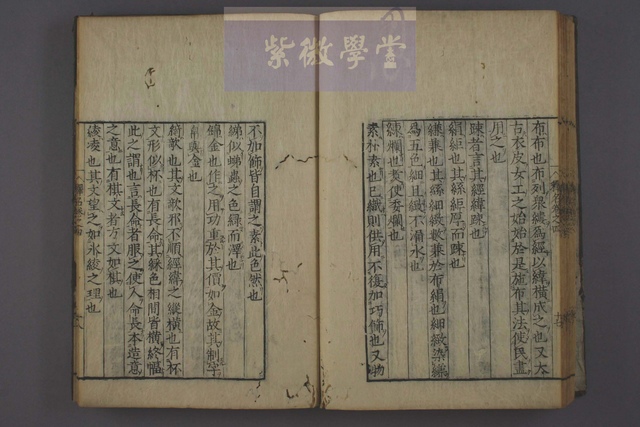 紫微學堂
布布也布列衆縷為經以緯橫成之也又太
古衣皮女工之始始於是施布其法使民盡
用之也
疎者言其經緯疎也
絹䋁也其絲䋁厚而疎也
縑兼也其絲細緻數兼於布絹也細緻染縑
為五色細且緻不漏水也
練爛也煮使委爛也
素朴素也已織則供用不復加巧飾也又物
不加飾皆自謂之素此色然也
綈似蝭蟲之色綠而澤也
錦金也作之用功重於其價如金故其制字
帛與金也
綺欹也其文欹邪不順經緯之縱橫也有杯
文形似杯也有長命其綵色相間皆橫終幅
此之謂也言長命者服之使人命長本造意
之意也有棋文者方文如棋也
綾凌也其文望之如氷凌之理也